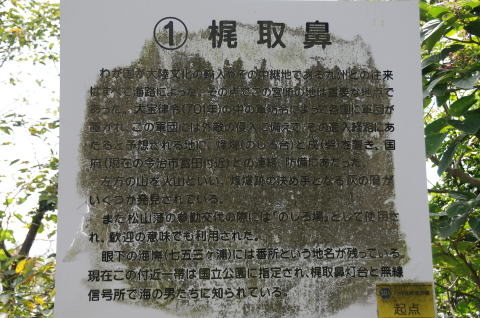 ① 梶取鼻
わが国が大陸文化の輸入やその中継地である九州との往来
はすべて海路によった。その点でこの宮崎の地は重要な地点で
あった。大宝律令(701年)の中の軍防令によって各国に軍団が
置かれ、この軍団には外敵の侵入に備えて、その進入経路にあ
たると予想される地に、烽燧(のしろ台)と戍(砦)を置き、国
府(現在の今治市富田付近)との連絡、防備にあたった。
左方の山を火山といい、烽燧跡の決め手となる灰の層が
いくつか発見されている。
また松山藩の参勤交代の際には「のしろ場」として使用さ
れ、歓迎の意味でも利用された。
眼下の海岸(七五三ヶ浦)には番所という地名が残っている。
現在この付近一帯は国立公園に指定され、梶取鼻灯台と無線
信号所で海の男たちに知られている。
起点